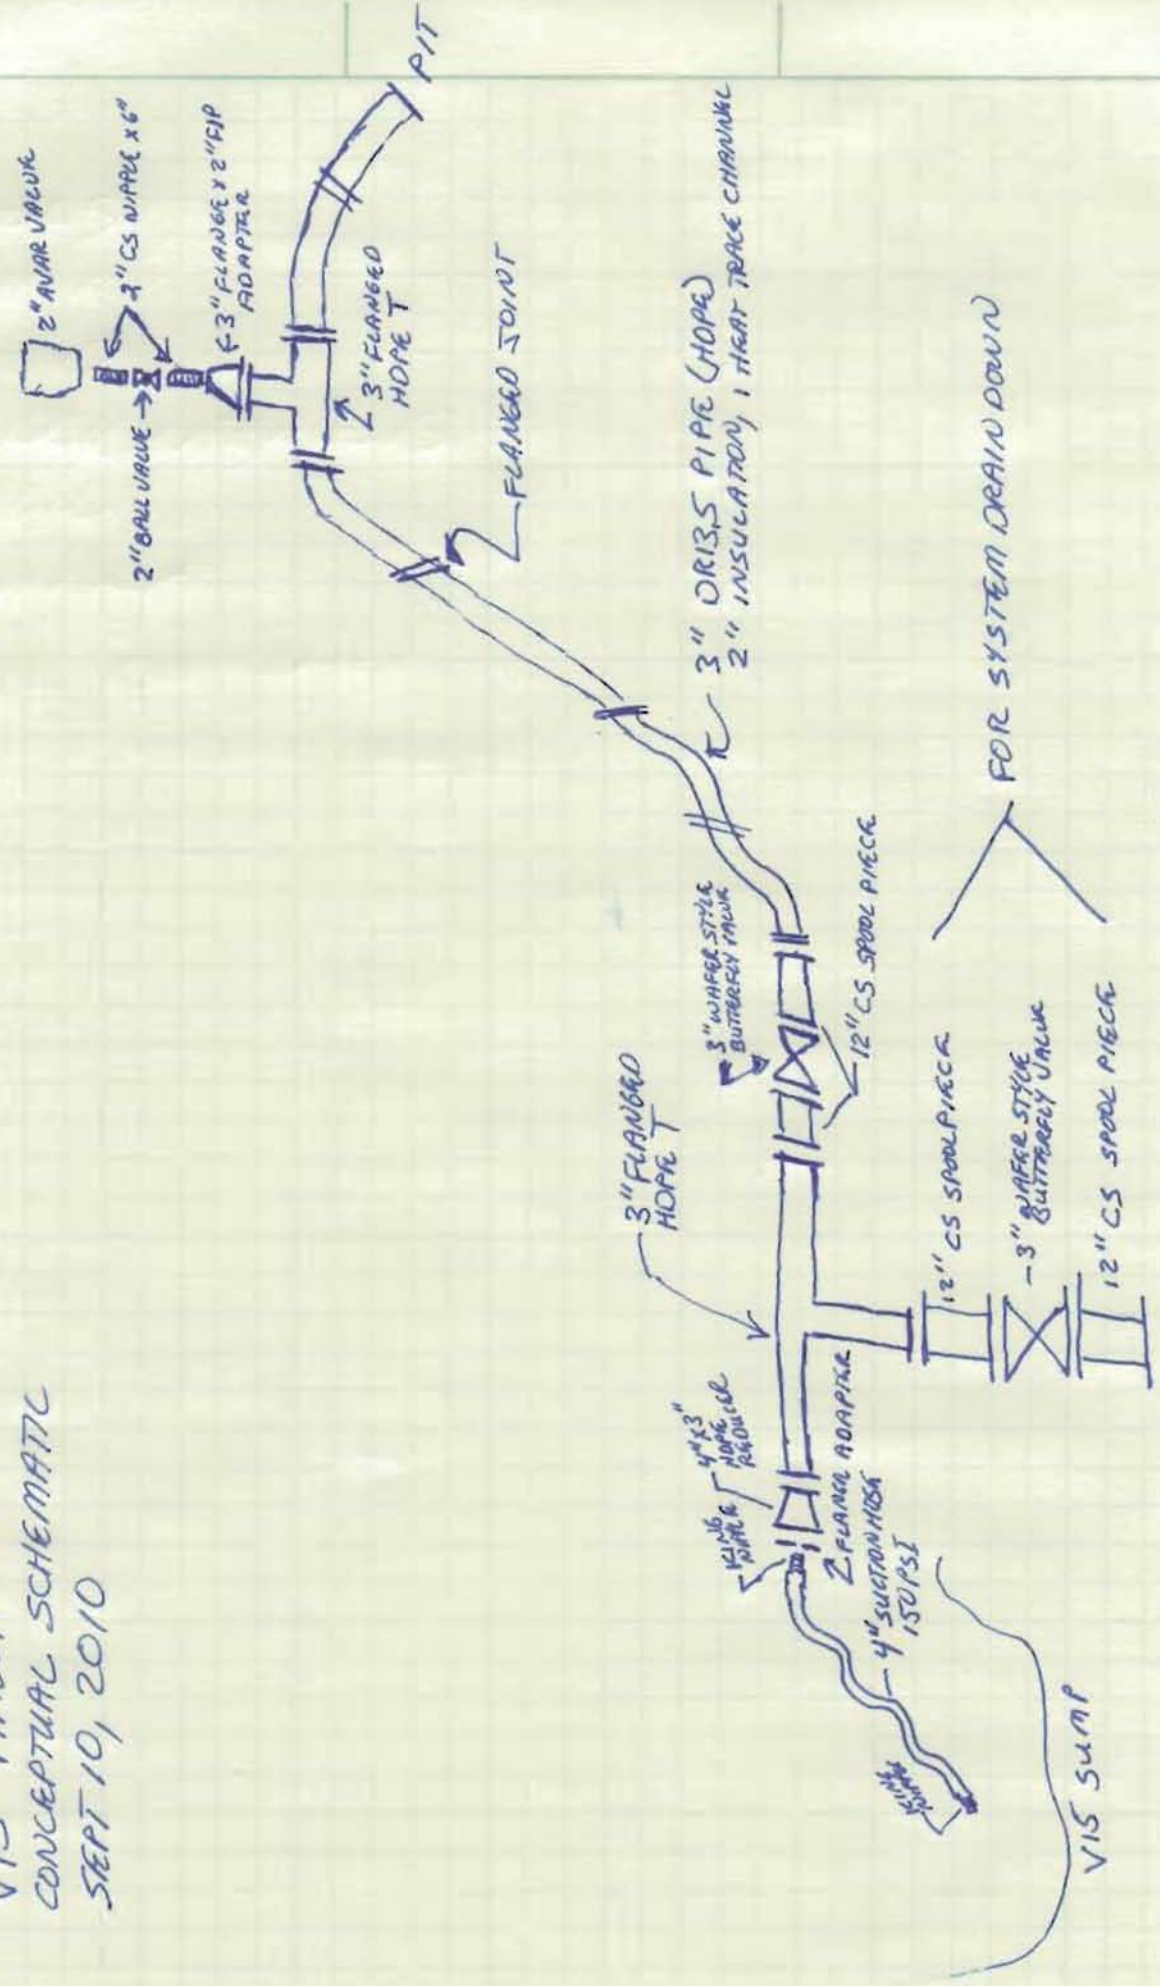 V15
CONCEPTUAL SCHEMATIC
SEPT 10, 2010
2" AVAR VALVE
2" CS NIPPLE x 6"
2" BALL VALVE
3" FLANGE x 2" FIP
ADAPTER
PIT
3" FLANGED
HDPE T
FLANGED JOINT
3" DR13.5 PIPE (HDPE)
2" INSULATION, 1 HEAT TRACE CHANNEL
3" WAFER STYLE
BUTTERFLY VALVE
12" CS SPOOL PIECE
3" FLANGED
HDPE T
KING
NIPPLE
4"x3"
HDPE
REDUCER
FLANGE ADAPTER
4" SUCTION HOSE
150 PSI
KING
NIPPLE
V15 SUMP
12" CS SPOOL PIECE
3" WAFER STYLE
BUTTERFLY VALVE
12" CS SPOOL PIECE
FOR SYSTEM DRAIN DOWN